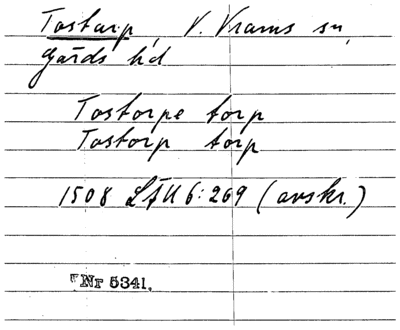 Tostarp, V. Vrams sn,
Gärds hd
Tostorpe torp
Tostorp torp
1508 LÅU 6:269 (avskr.)
Nr 5341.